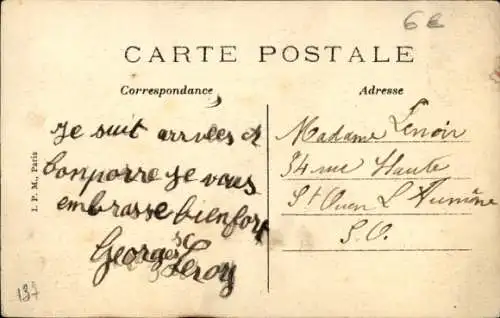 6€
CARTE POSTALE
Correspondance
Adresse
Je suit arrivées a
bonporre je vous
embrasse bienfort
Georges
Leroy
Madame Lenoir
34 rue Haute
St Ouen L'Aumône
S. O.
I. P. M., Paris
137